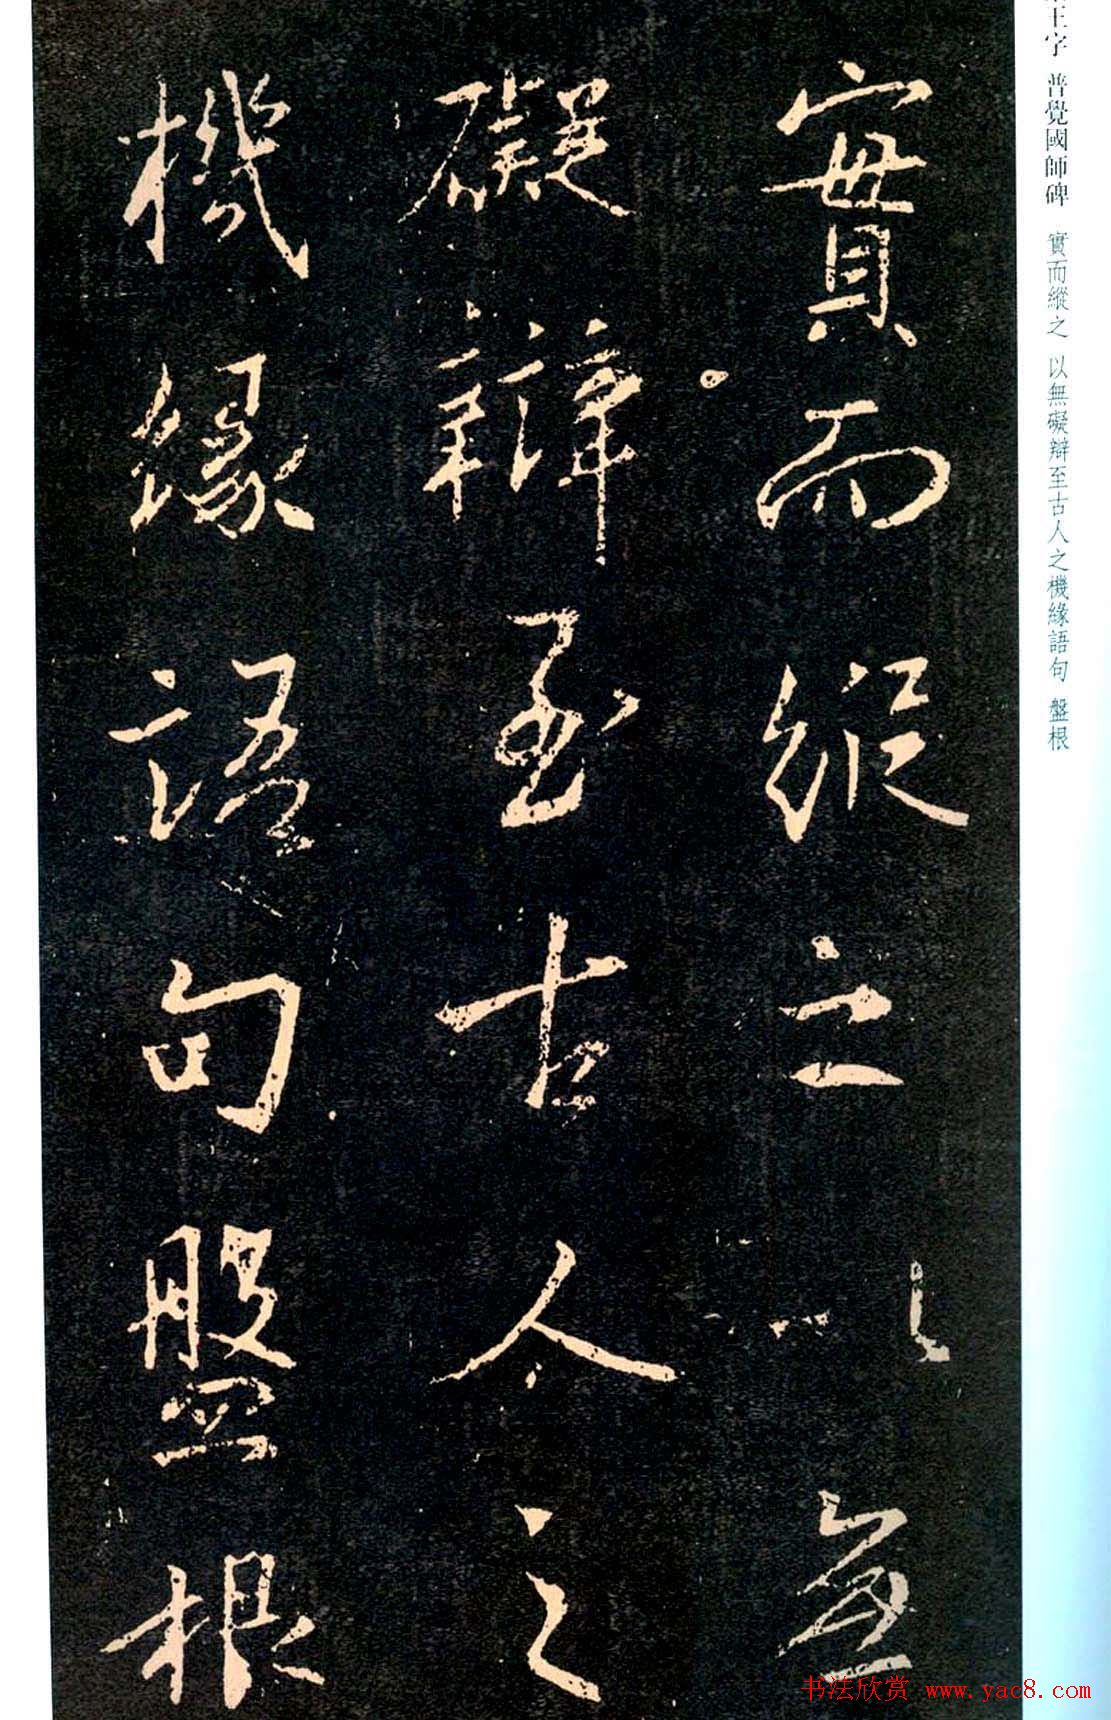 實而縱之以無
礙辯至古人之
機緣語句盤根
王字 普覺國師碑 實而縱之 以無礙辯至古人之機緣語句 盤根
书法欣赏 www.yac8.com